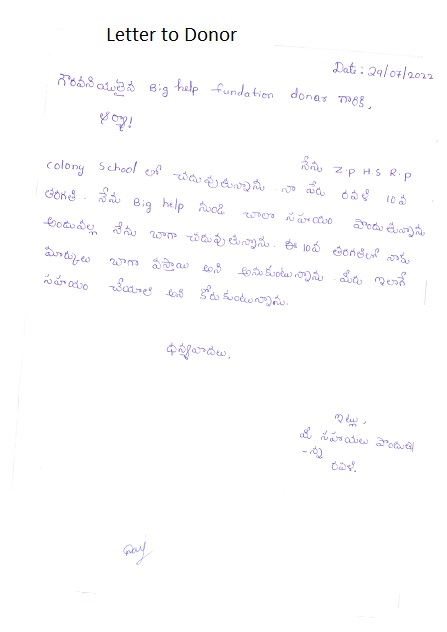 Letter to Donor
Date : 29/07/2022
గౌరవనియులైన Big help fundation donar గారికి,
ఆర్యా!
నేను Z.p H.S R.p
colony School లో చదువుతున్నాను. నా పేరు రవళి 10వ
తరగతి. నేను Big help నుండి చాలా సహయం పొందుతున్నాను
అందువల్ల నేను బాగా చదువుతున్నాను. ఈ 10వ తరగతిలో నాకు
మార్కులు బాగా వస్తాయి అని అనుకుంటున్నాను. మీరు ఇలాగే
సహయం చేయాలి అని కోరుకుంటున్నాను.
ధన్యవాదలు,
ఇట్లు,
మీ సహయలు పొందుతు
-న్న
రవళి.